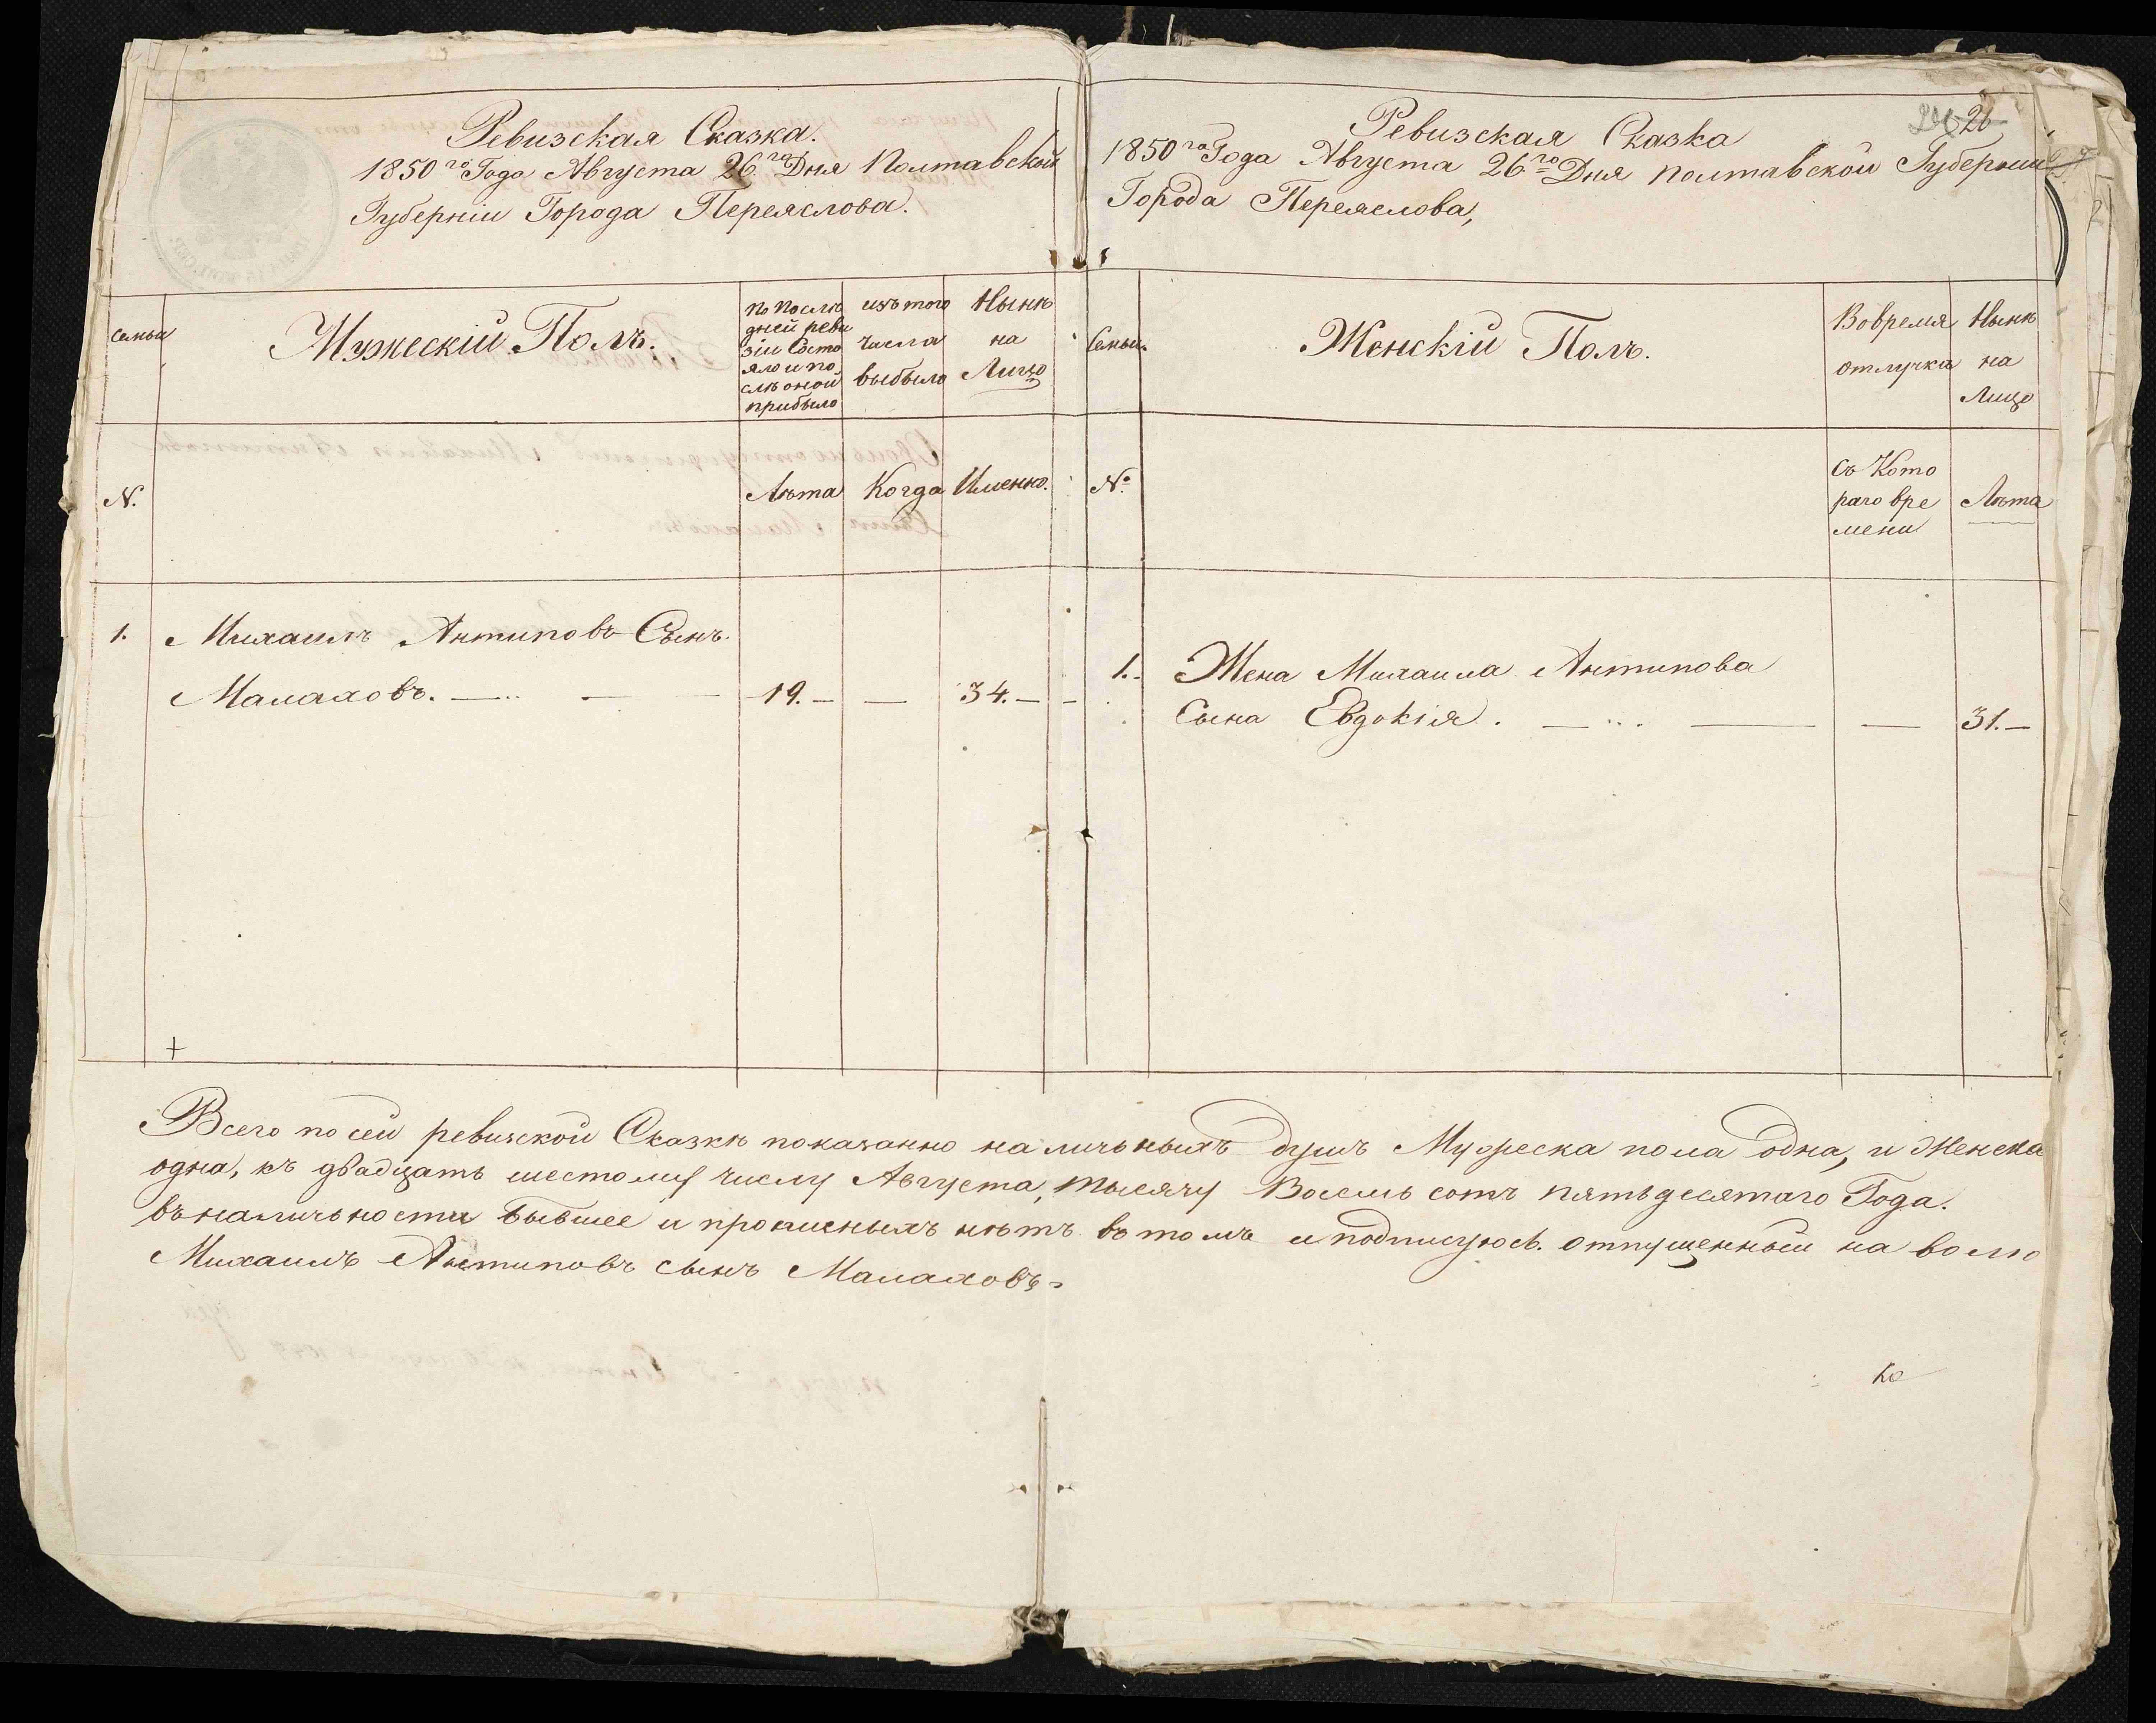 Ревизская Сказка.
1850го Года Августа 26го Дня Полтавской
Губерніи Города Переяслова.
Семьи
Мужескій Полъ.
По послѣ
дней реви
зіи Состо
яло и по
слѣ оной
прибыло
изъ того
числа
выбыло
Нынѣ
на
Лицо
N.
Лѣта
Когда
Именно.
1.
Михаилъ Антиповъ Сынъ
Малаховъ.
19.
34.
26
Ревизская Сказка
1850го Года Августа 26го Дня Полтавской Губерніи
Города Переяслова,
Семьи
Женскій Полъ.
Вовремя
отлучка
Нынѣ
на
Лицо
№
Съ Кото
раго вре
мени
Лѣта
1.
Жена Михаила Антипова
Сына Евдокія.
31.
Всего по сей ревизской Сказкѣ показанно наличьныхъ душъ Мужеска пола одна, и Женска
одна, къ двадцать шестому числу Августа, тысячу Восемь сотъ пятьдесятаго Года.
въ наличьности бывшее и прописныхъ нѣтъ въ томъ и подписуюсь. отпущенный на волю
Михаилъ Антиповъ сынъ Малаховъ